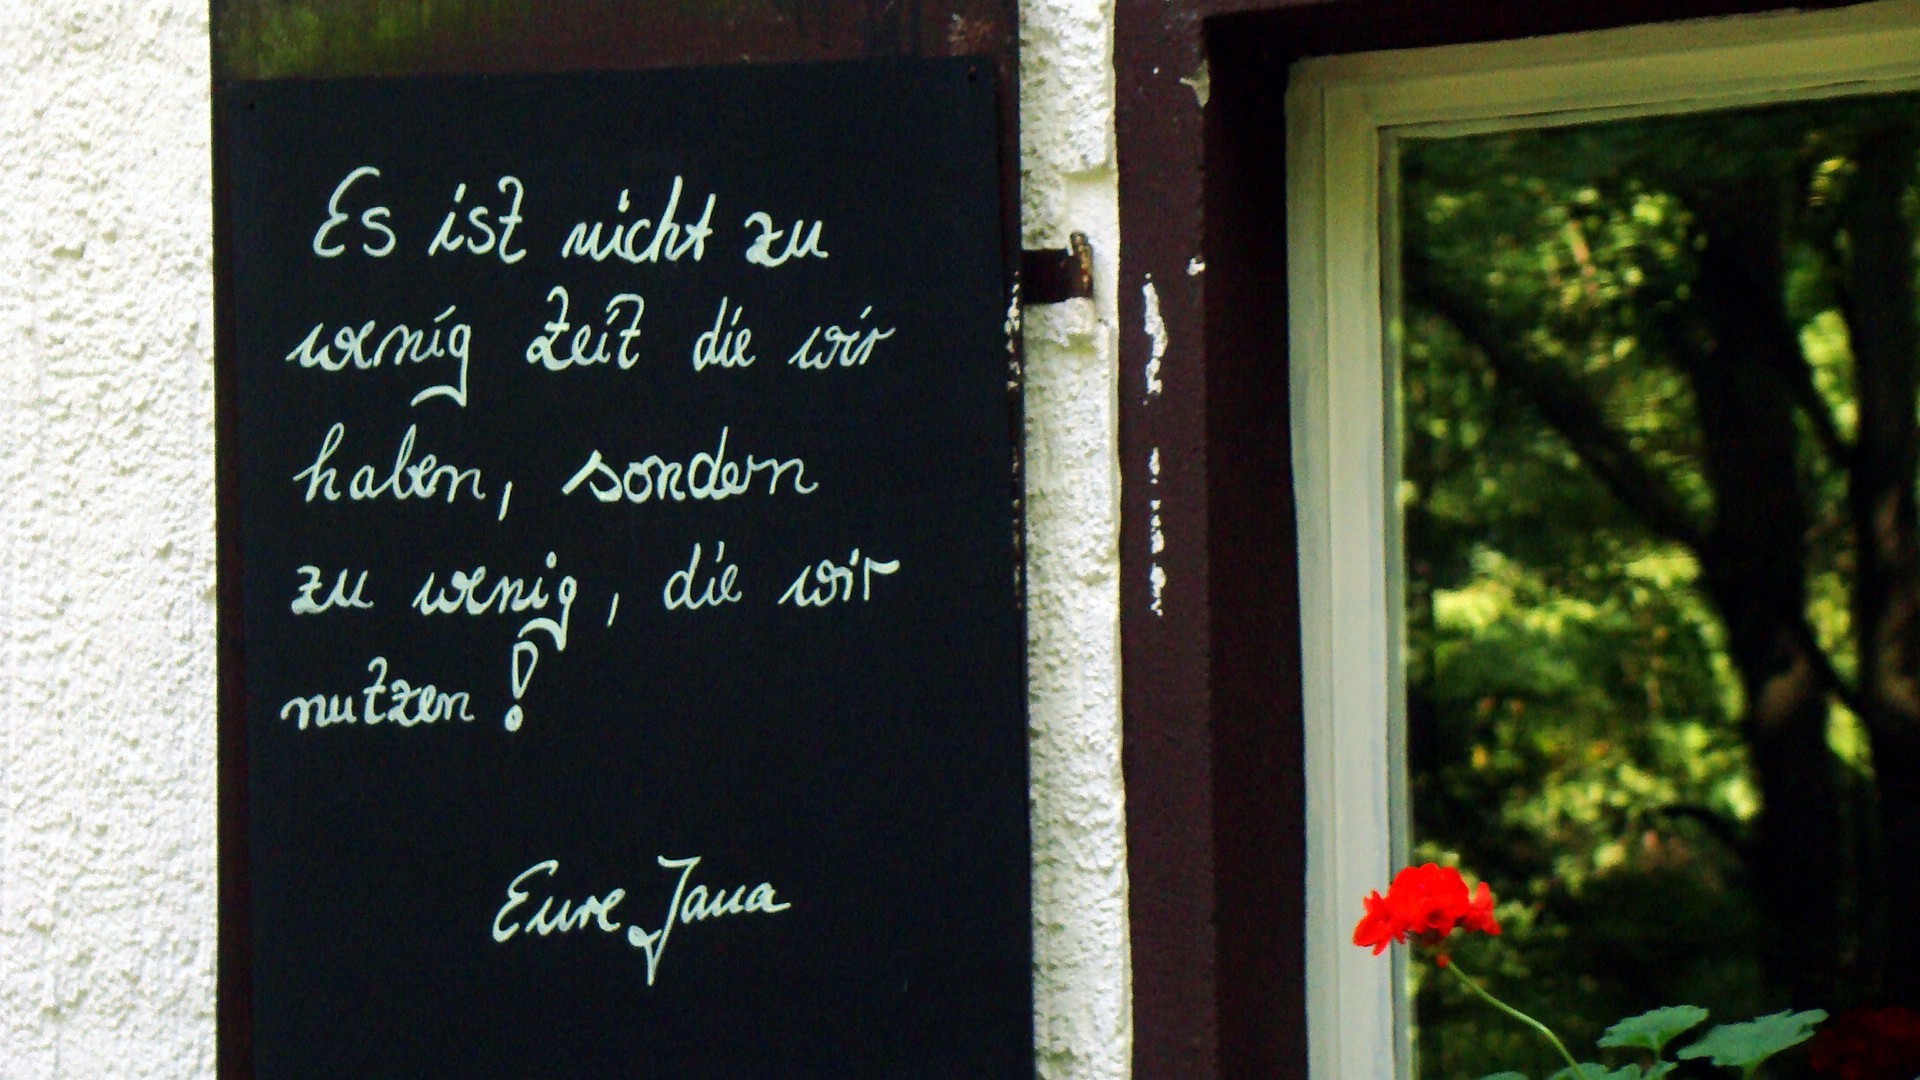 Es ist nicht zu
wenig Zeit die wir
haben, sondern
zu wenig, die wir
nutzen!
Eure Jana